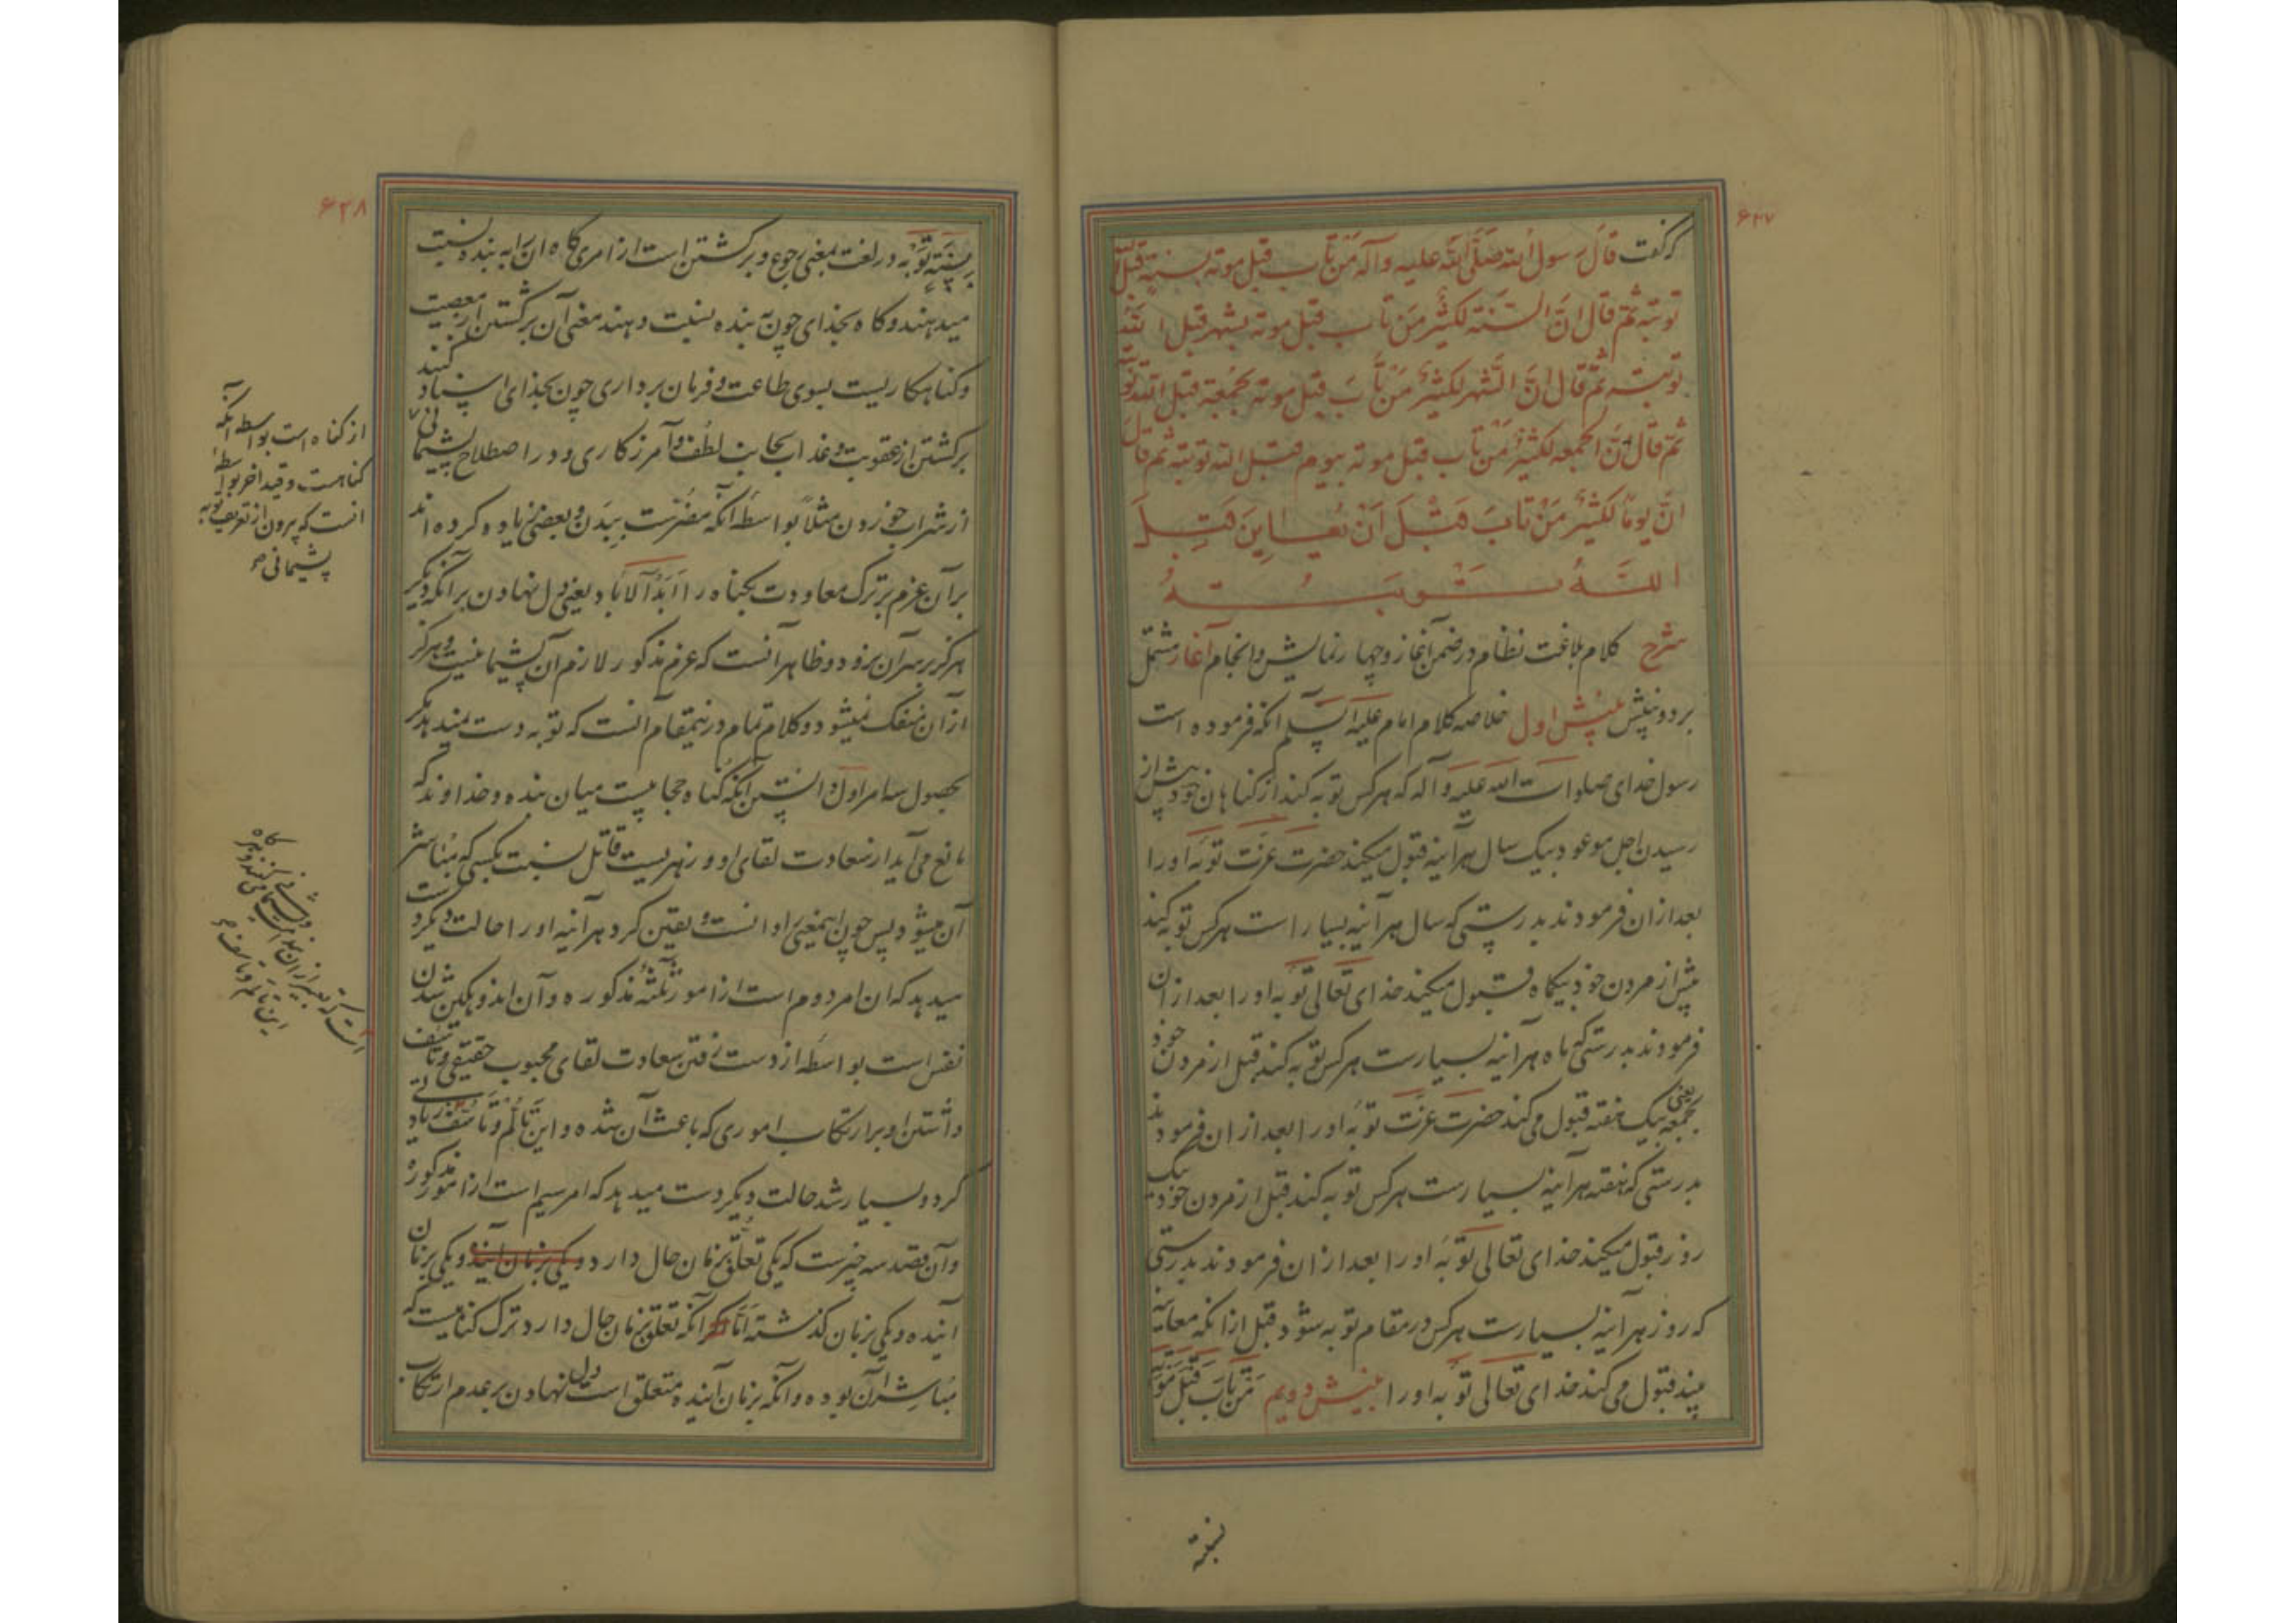 ۶۲۷
که گفت قال رسول الله صلی الله علیه وآله من تاب قبل موته بسنة قبل
توبته ثم قال ان السنة لکثیر من تاب قبل موته بشهر قبل الله
توبته ثم قال ان الشهر لکثیر من تاب قبل موته بجمعة قبل الله توبته
ثم قال ان الجمعه لکثیر من تاب قبل موته بیوم قبل الله توبته ثم قال
ان یوما لکثیر من تاب قبل ان یعاین قبل
الله توبته
شرح کلام بلاغت نظام در ضمن آغاز و چهار نمایش و انجام آغاز مشتمل
بر دو بینش بینش اول خلاصه کلام امام علیه السلم انکه فرموده است
رسول خدای صلوات الله علیه و آله که هر کس توبه کند از کناهان خود پیش از
رسیدن اجل موعود بیک سال هر آینه قبول میکند حضرت عزت توبه او را
بعد از ان فرمودند بدرستی که سال هر آینه بسیار است هر کس توبه کند
پیش از مردن خود بیکماه قبول میکند خدای تعالی توبه او را بعد از ان
فرمودند بدرستی که ماه هر آینه بسیارست هر کس توبه کند قبل از مردن خود
بجمعه یعنی بیک هفته قبول می کند حضرت عزت توبه او را بعد از ان فرمودند
بدرستی که هفته هر آینه بسیارست هر کس توبه کند قبل از مردن خود بیک
روز قبول میکند خدای تعالی توبه او را بعد از ان فرمودند بدرستی
که روز هر آینه بسیارست هر کس در مقام توبه شود قبل از انکه معاینه
بیند قبول می کند خدای تعالی توبه او را بینش دویم من تاب قبل موته
بسنة
۶۲۸
بسنة توبه در لغت بمعنی رجوع و برکشتن است از امری کاه ان را به بنده نسبت
میدهند و کاه بخدای چون به بنده نسبت دهند معنی آن برکشتن از معصیت
و کناهکاریست بسوی طاعت و فرمان برداری چون بخدای اسناد کنند
برکشتن از عقوبت و عذاب بجانب لطف و آمرزکاری و در اصطلاح پشیمانی
از شراب خوردن مثلا بواسطه آنکه مضرست ببدن و بعضی زیاده کرده اند
بر آن عزم بر ترک معاودت بکناه را ابدا الاباد یعنی دل نهادن بر آنکه دیکر
هرکز بر سر آن نرود و ظاهر آنست که عزم مذکور لازم آن پشیمانیست و هرکز
از آن منفک نمیشود و کلام تمام درینمقام آنست که توبه دست نمیدهد مکر
بحصول سه امر اول دانستن آنکه کناه حجابیست میان بنده و خداوند که
مانع می آید از سعادت لقای او و زهریست قاتل نسبت بکسی که مباشر
آن میشود پس چون اینمعنی را دانست و یقین کرد هر آینه او را حالت دیکر دست
میدهد که ان امر دوم است از امور ثلثه مذکوره و آن اندوهکین شدن
نفس است بواسطه از دست رفتن سعادت لقای محبوب حقیقی و تاسف
داشتن او بر ارتکاب اموری که باعث آن شده و این تالم و تاسف
کرد و بسیار شد حالت دیکر دست میدهد که امر سیم است از امور مذکوره
وآن قصد سه چیزست که یکی تعلق بزمان حال دارد و یکی بزمان آینده و یکی بزمان
آینده و یکی بزمان کذشته اما آنکه تعلق بزمان حال دارد ترک کناهیست که
مباشر آن بوده و آنکه بزمان آینده متعلق است دل نهادن بر عدم ارتکاب
از کناه است بواسطه آنکه
کناهست و قید اخر بواسطه
انست که بیرون از تعریف توبه
پشیمانی